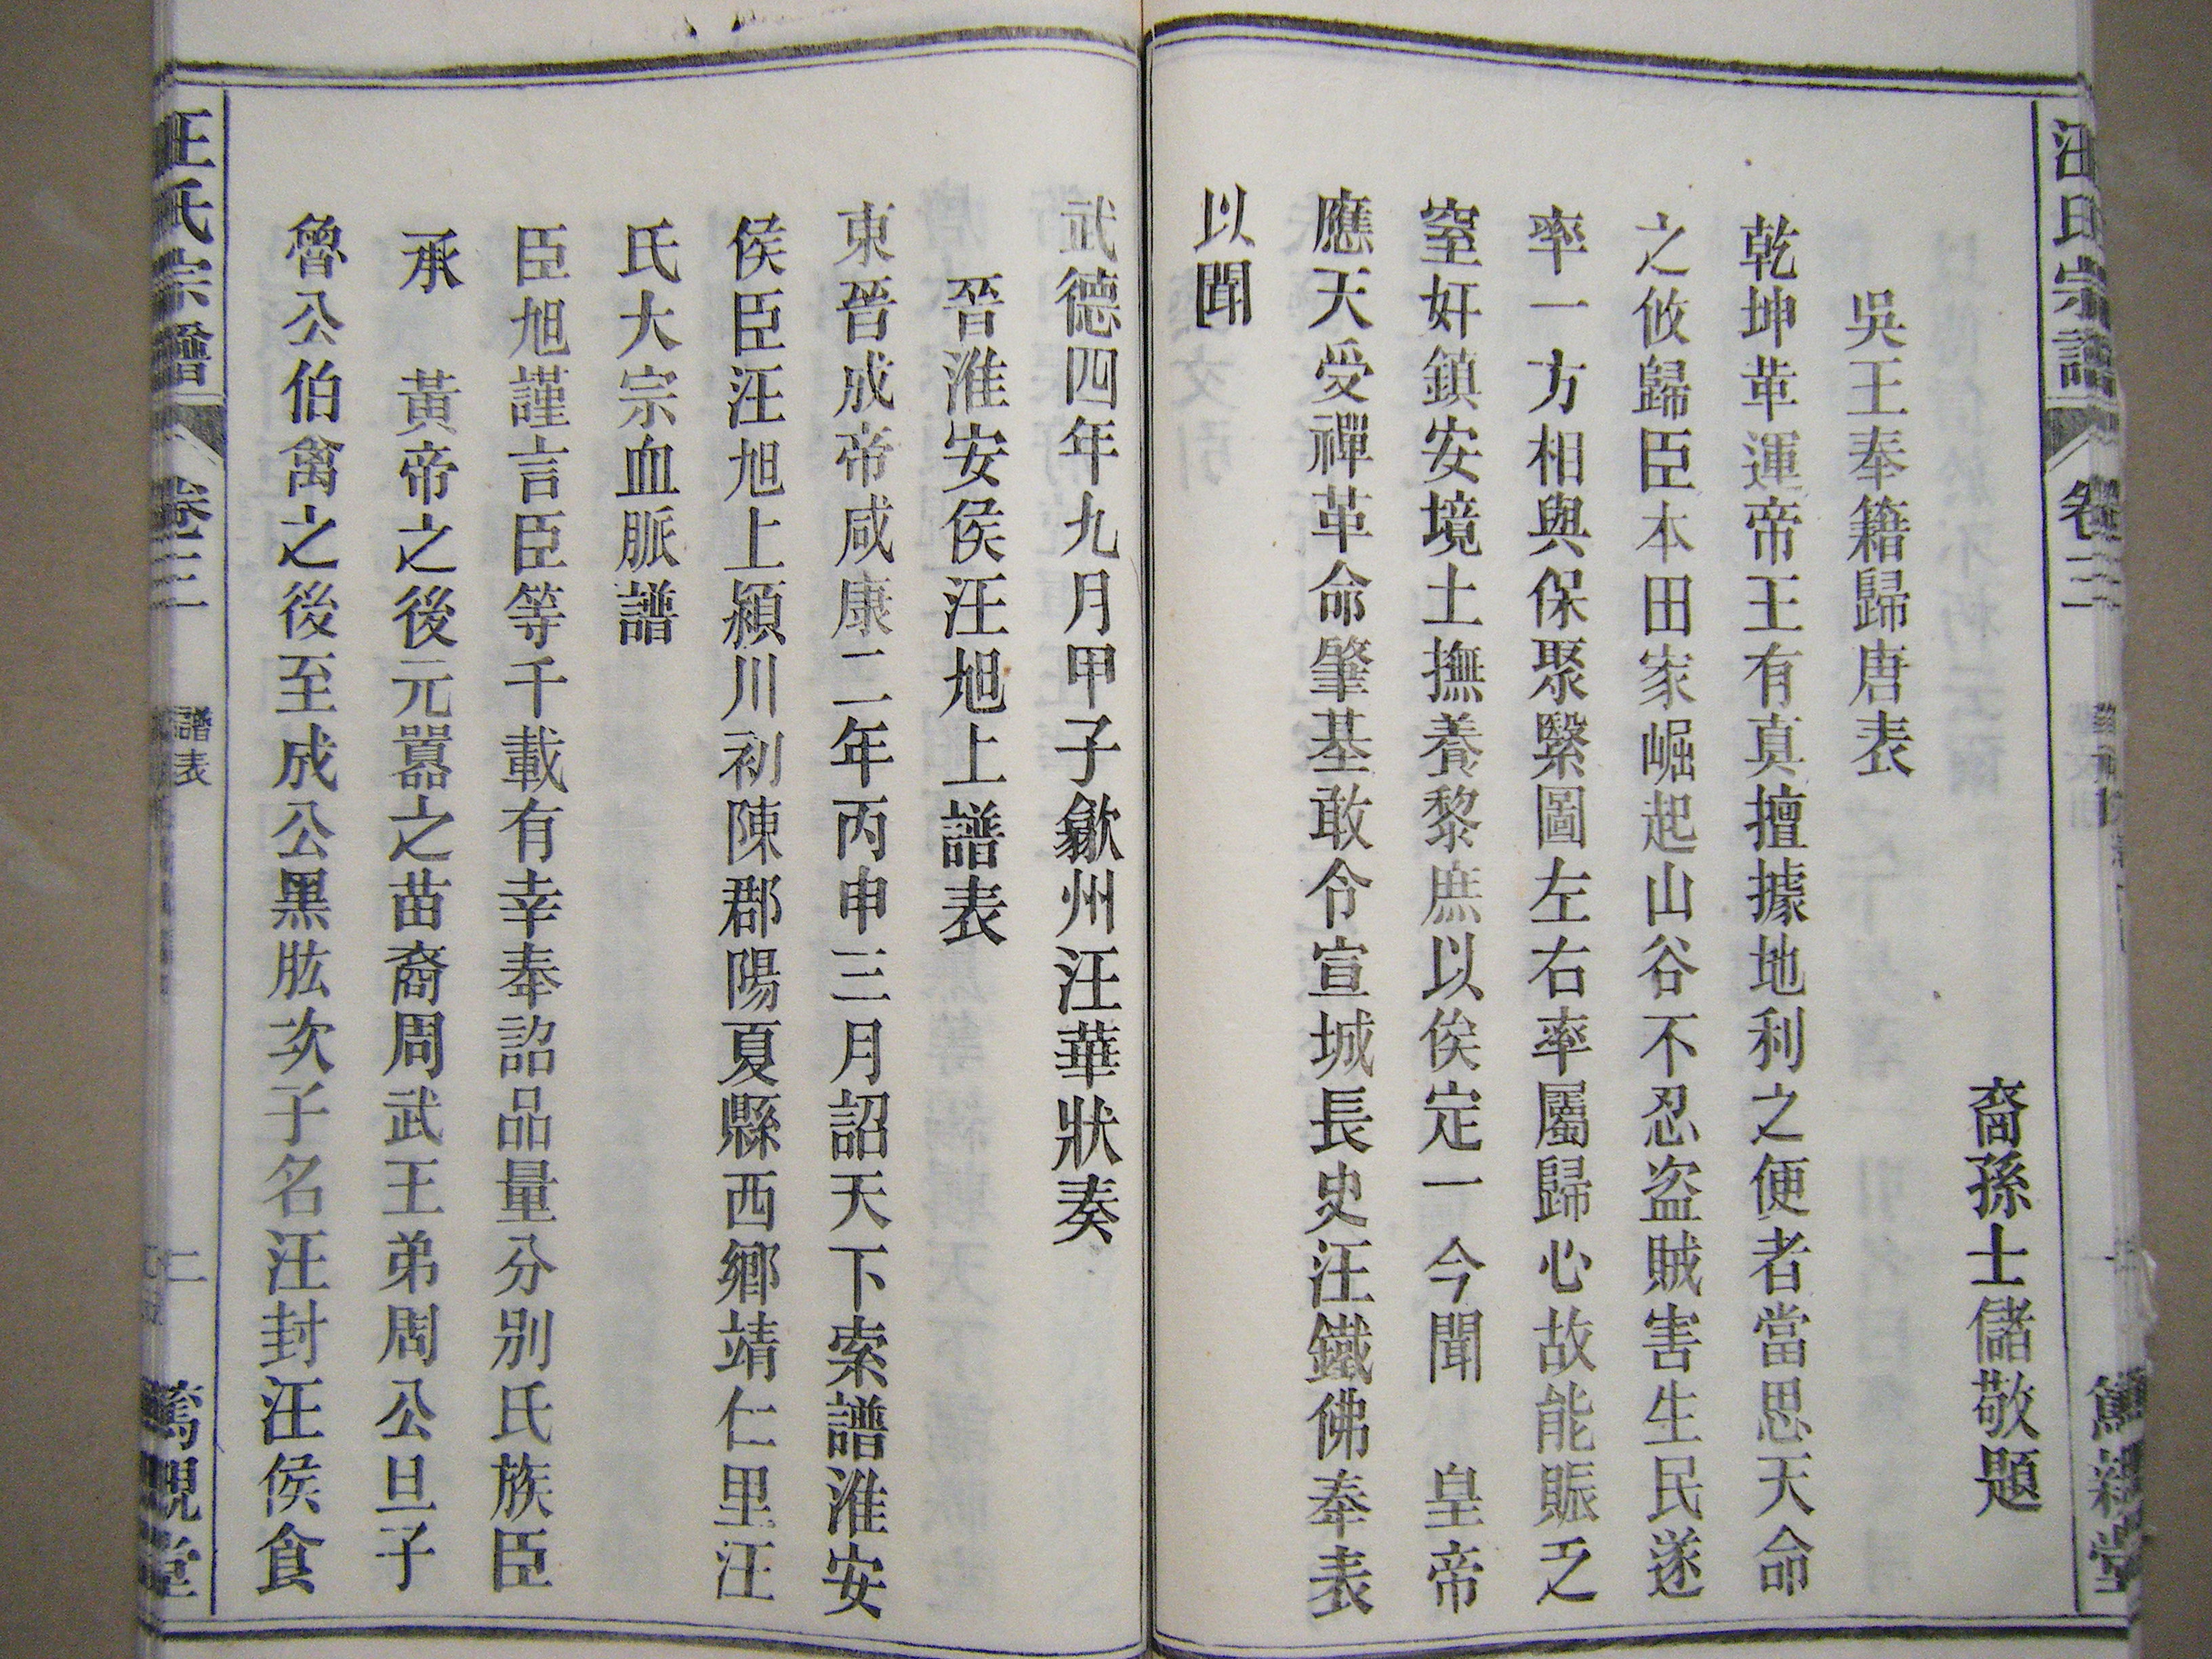 汪氏宗譜
卷三
裔孫士儲敬題
吳王奉籍歸唐表
乾坤革運帝王有真擅據地利之便者當思天命
之攸歸臣本田家崛起山谷不忍盜賊害生民遂
率一方相與保聚繄圖左右率屬歸心故能賑乏
窒奸鎮安境土撫養黎庶以俟定一今聞 皇帝
應天受禪革命肇基敢令宣城長史汪鐵佛奉表
以聞
武德四年九月甲子歙州汪華狀奏
晉淮安侯汪旭上譜表
東晉成帝咸康二年丙申三月詔天下索譜淮安
侯臣汪旭上潁川初陳郡陽夏縣西鄉靖仁里汪
氏大宗血脈譜
臣旭謹言臣等千載有幸奉詔品量分別氏族臣
承 黃帝之後元囂之苗裔周武王弟周公旦子
魯公伯禽之後至成公黑肱次子名汪封汪侯食
汪氏宗譜
卷三
譜表
二
篤親堂